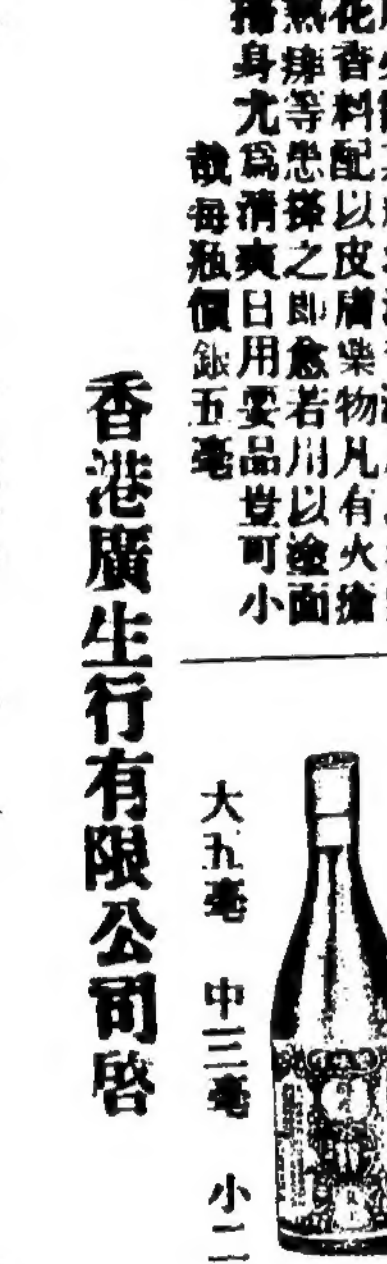 香料配以皮膚藥物凡有火瘡
熱痱等患搽之即愈若用以塗面
身尤爲清爽日用要品豈可小
哉每瓶價銀五毫
大五毫 中三毫 小二
香港廣生行有限公司啓